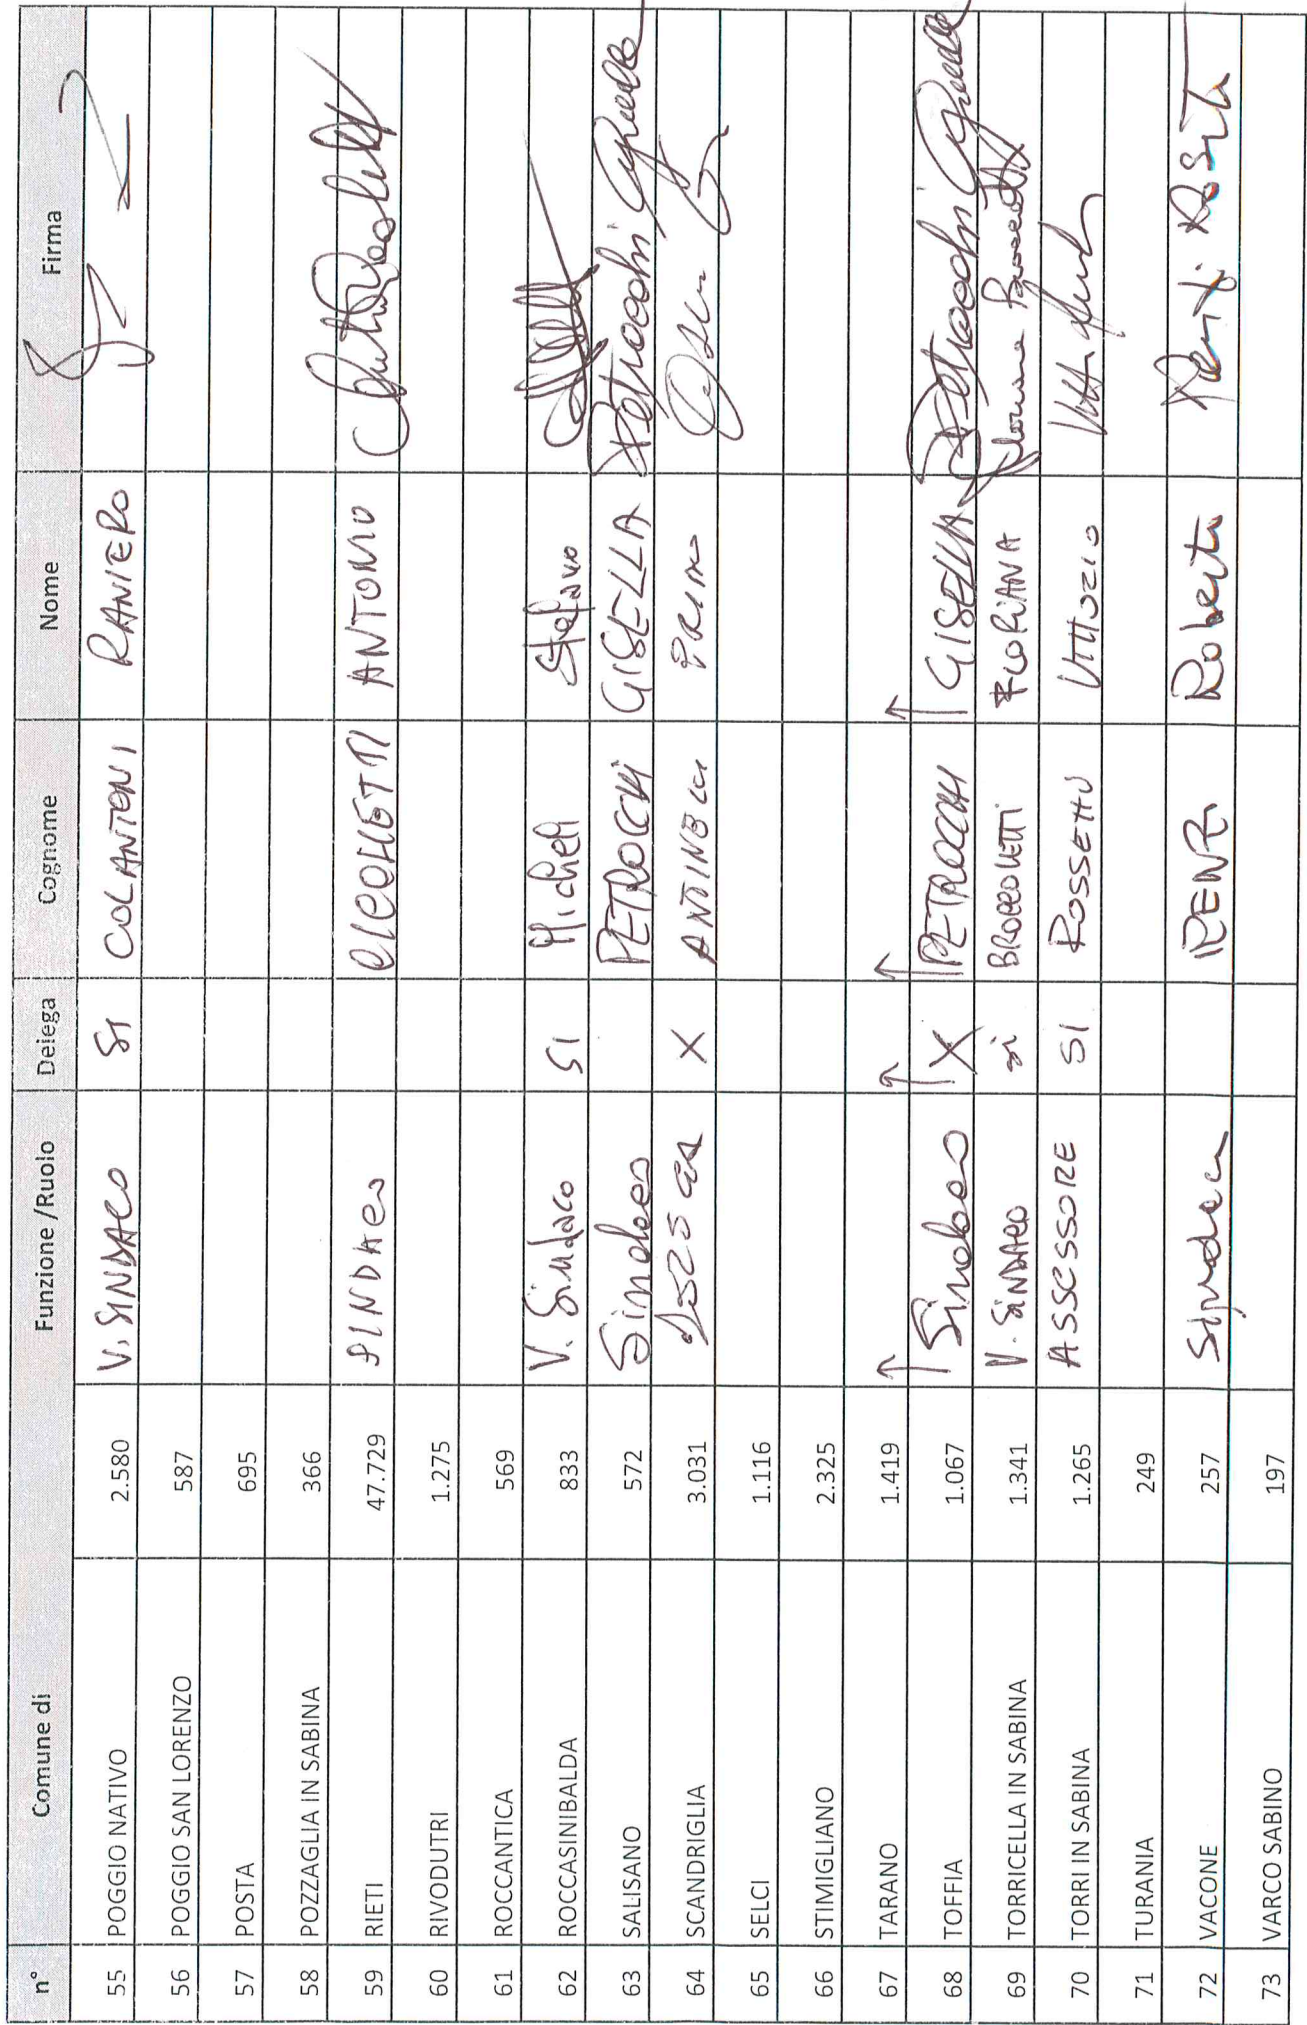 n° Comune di Funzione /Ruolo Delega Cognome Nome Firma
55 POGGIO NATIVO 2.580 V. SINDACO SI COLANTONI RANIERO
56 POGGIO SAN LORENZO 587
57 POSTA 695
58 POZZAGLIA IN SABINA 366
59 RIETI 47.729 SINDACO CICCHETTI ANTONIO
60 RIVODUTRI 1.275
61 ROCCANTICA 569
62 ROCCASINIBALDA 833 V. Sindaco SI Micheli Stefano
63 SALISANO 572 Sindaco PETROCCHI GISELLA Petrocchi Gisella
64 SCANDRIGLIA 3.031 X PRIMO
65 SELCI 1.116
66 STIMIGLIANO 2.325
67 TARANO 1.419 ↑ ↑ ↑ ↑
68 TOFFIA 1.067 Sindaco X PETROCCHI GISELLA Petrocchi Gisella
69 TORRICELLA IN SABINA 1.341 V. SINDACO si FLORIANA
70 TORRI IN SABINA 1.265 ASSESSORE SI Vittorio
71 TURANIA 249
72 VACONE 257 Sindaca RENZI Roberta
73 VARCO SABINO 197